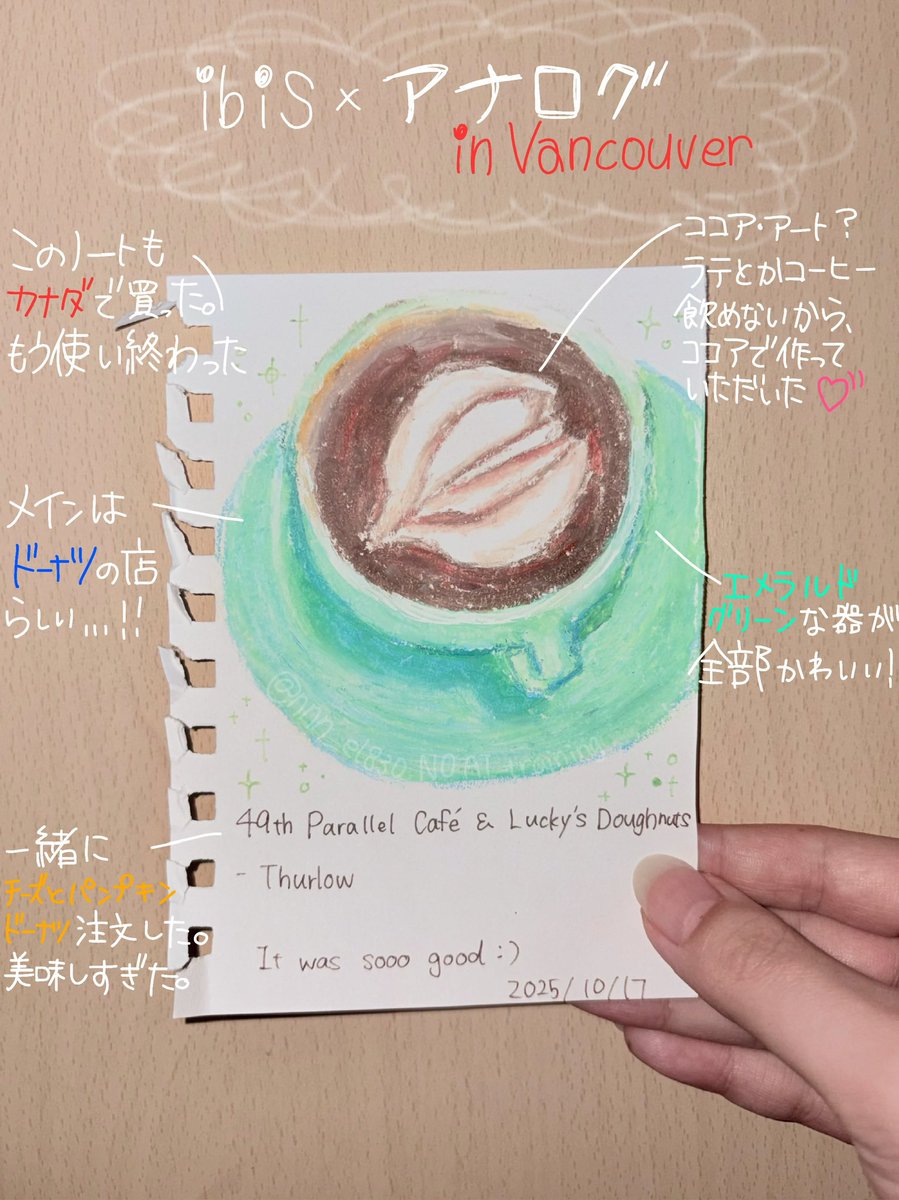 ibis × アナログ
in Vancouver
このノートも
カナダで買った。
もう使い終わった
ココア・アート？
ラテとかコーヒー
飲めないから、
ココアで作って
いただいた
メインは
ドーナツの店
らしい...!!
エメラルド
グリーンな器が
全部かわいい!
NO AI training
49th Parallel Café & Lucky's Doughnuts
- Thurlow
It was sooo good :)
2025/10/17
一緒に
チーズとパンプキン
ドーナツ注文した。
美味しすぎた。